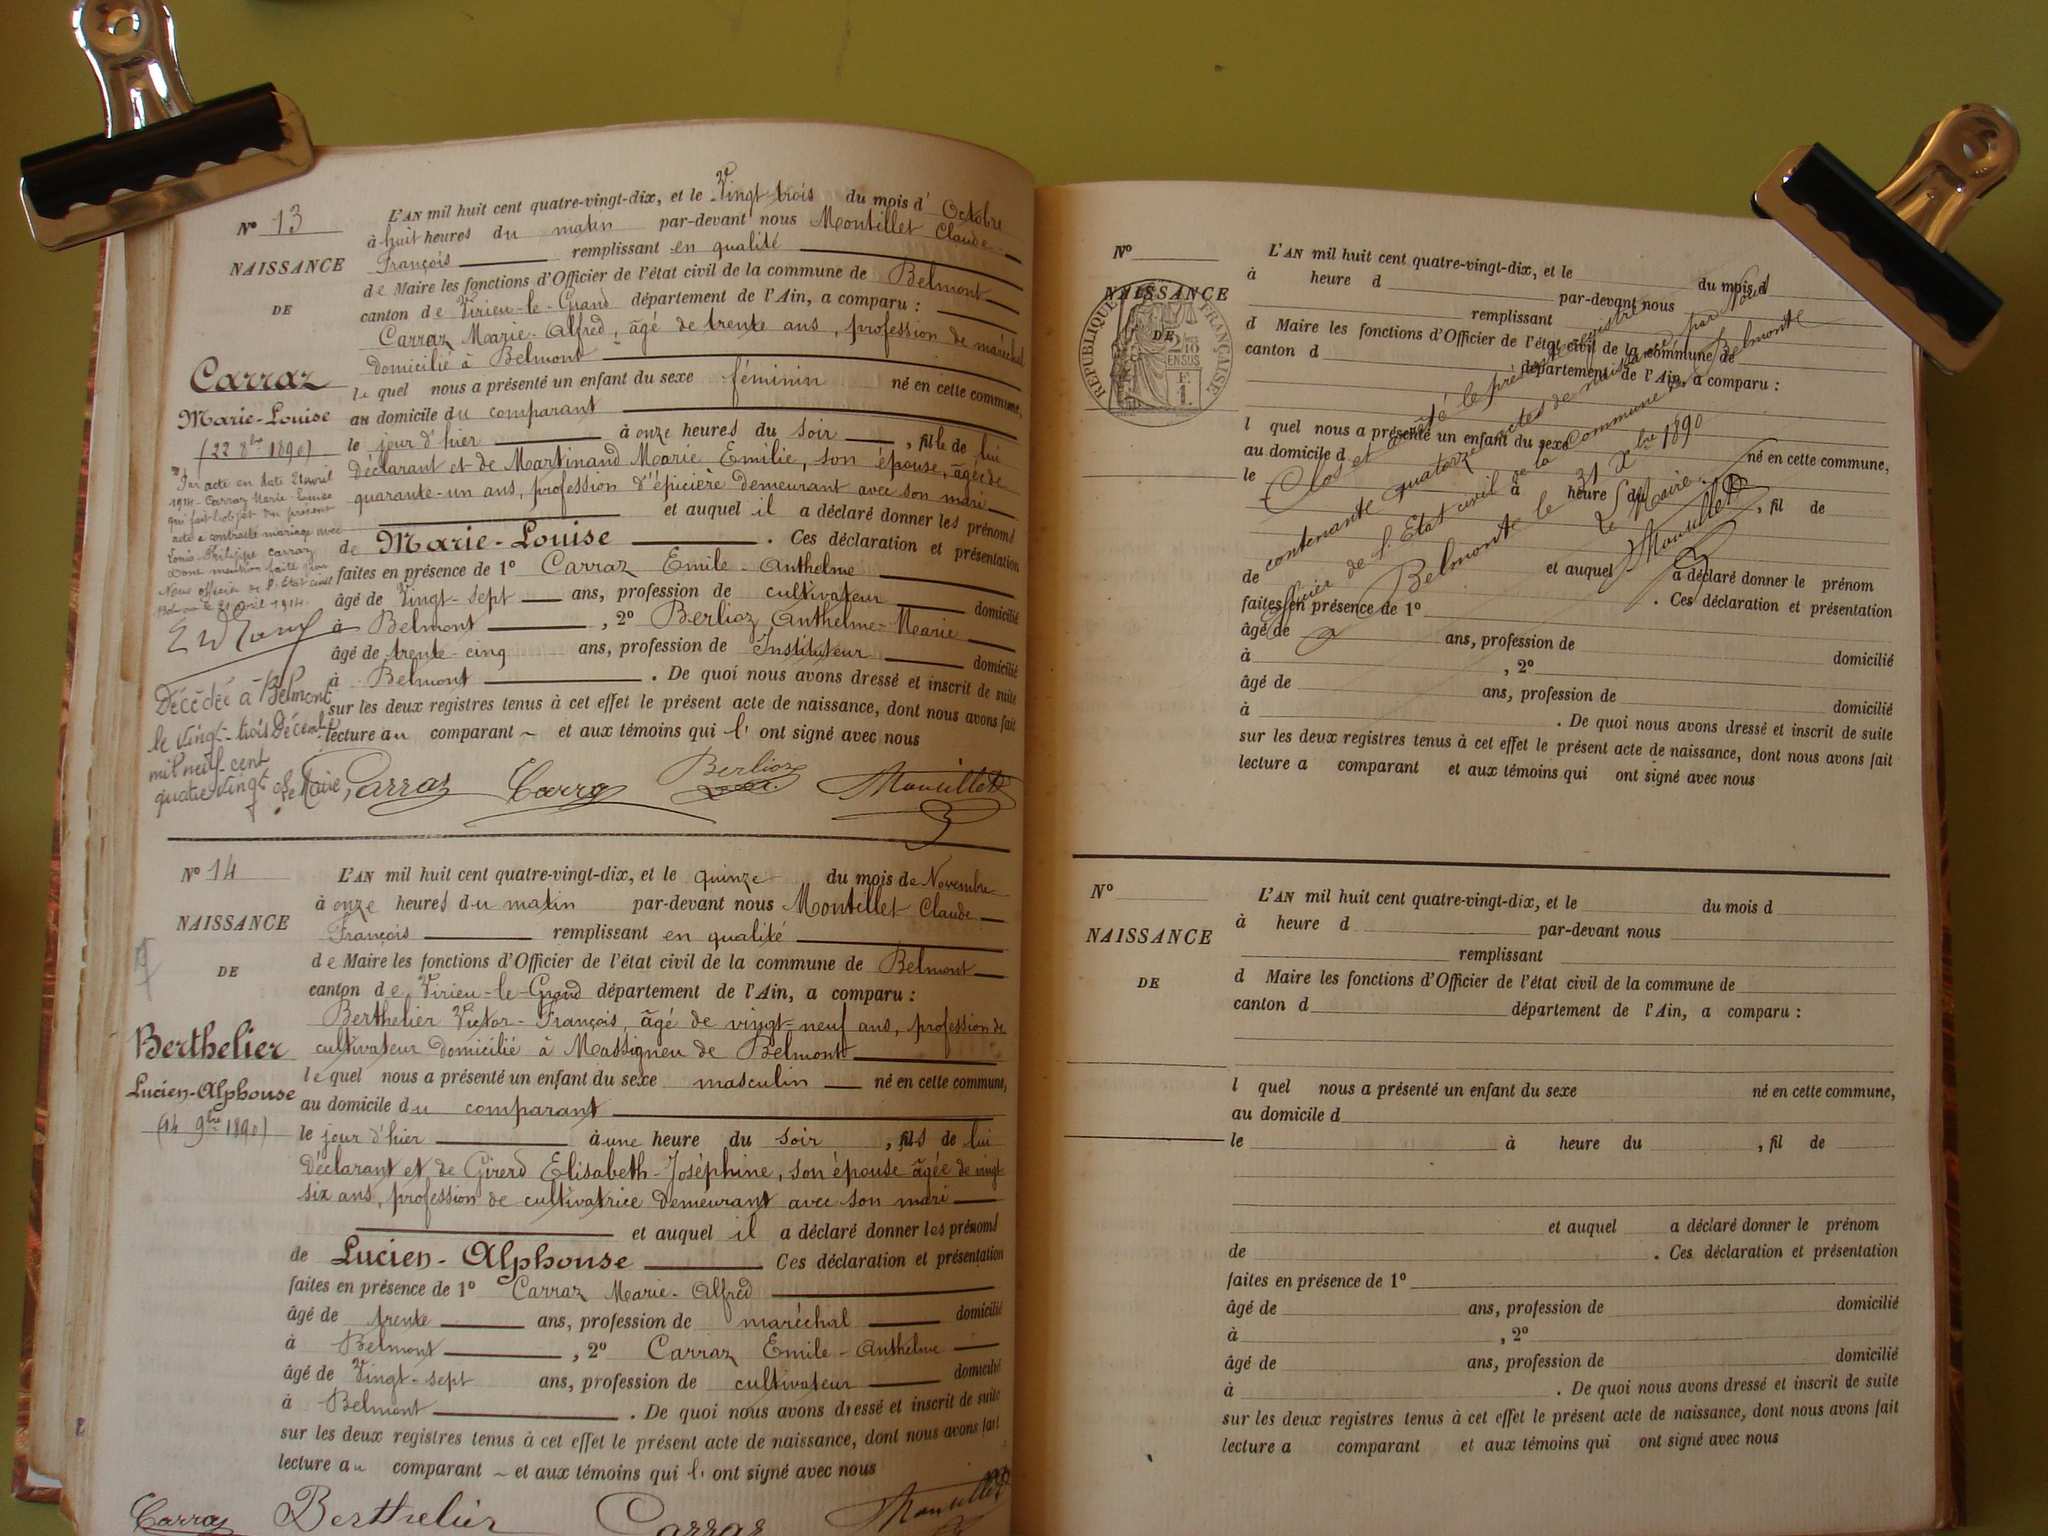 N° 13
NAISSANCE
DE
Carraz
Marie-Louise
(22 8bre 1890)
Par acte en date 21 avril
1914 Carraz Marie-Louise
qui fait l'objet du présent
acte a contracté mariage avec
Louis Philippe Carraz
Dont mention faite par
Nous officier de l'Etat civil
21 avril 1914.
Décédée à Belmont
le vingt-trois Décembre
mil neuf cent
quatre vingt
Le Maire,
L'AN mil huit cent quatre-vingt-dix, et le Vingt trois du mois d' Octobre
à huit heures du matin par-devant nous Montillet Claude
François remplissant en qualité
de Maire les fonctions d'Officier de l'état civil de la commune de Belmont
canton de Virieu-le-Grand département de l'Ain, a comparu :
Carraz Marie-Alfred, âgé de trente ans, profession de maréchal
domicilié à Belmont
le quel nous a présenté un enfant du sexe féminin né en cette commune,
au domicile du comparant
le jour d'hier à onze heures du soir, fille de lui
déclarant et de Martinand Marie Emilie, son épouse, âgée de
quarante-un ans, profession d'épicière demeurant avec son mari
et auquel il a déclaré donner les prénoms
de Marie-Louise . Ces déclaration et présentation
faites en présence de 1° Carraz Emile-Anthelme
âgé de Vingt-sept ans, profession de cultivateur domicilié
à Belmont , 2° Berlioz Anthelme-Marie
âgé de trente-cinq ans, profession de Instituteur domicilié
à Belmont . De quoi nous avons dressé et inscrit de suite
sur les deux registres tenus à cet effet le présent acte de naissance, dont nous avons fait
lecture au comparant et aux témoins qui l' ont signé avec nous
Carraz Carraz Berlioz Montillet
N° 14
NAISSANCE
DE
Berthelier
Lucien-Alphonse
(14 9bre 1890)
L'AN mil huit cent quatre-vingt-dix, et le quinze du mois de Novembre
à onze heures du matin par-devant nous Montillet Claude
François remplissant en qualité
de Maire les fonctions d'Officier de l'état civil de la commune de Belmont
canton de Virieu-le-Grand département de l'Ain, a comparu :
Berthelier Victor-François, âgé de vingt-neuf ans, profession de
cultivateur domicilié à Massigneu de Belmont
le quel nous a présenté un enfant du sexe masculin né en cette commune,
au domicile du comparant
le jour d'hier à une heure du soir, fils de lui
déclarant et de Girerd Elisabeth-Joséphine, son épouse âgée de vingt
six ans, profession de cultivatrice demeurant avec son mari
et auquel il a déclaré donner les prénoms
de Lucien-Alphonse Ces déclaration et présentation
faites en présence de 1° Carraz Marie-Alfred
âgé de trente ans, profession de maréchal domicilié
à Belmont , 2° Carraz Emile-Anthelme
âgé de Vingt-sept ans, profession de cultivateur domicilié
à Belmont . De quoi nous avons dressé et inscrit de suite
sur les deux registres tenus à cet effet le présent acte de naissance, dont nous avons fait
lecture au comparant et aux témoins qui l' ont signé avec nous
Carraz Berthelier Carraz Montillet
N°
NAISSANCE
DE
RÉPUBLIQUE FRANÇAISE
2/10
EN SUS
F.
1.
L'AN mil huit cent quatre-vingt-dix, et le du mois d
à heure d par-devant nous
remplissant
d Maire les fonctions d'Officier de l'état civil de la commune de
canton d département de l'Ain, a comparu :
l quel nous a présenté un enfant du sexe né en cette commune,
au domicile d
le à heure du , fil de
et auquel a déclaré donner le prénom
de . Ces déclaration et présentation
faites en présence de 1°
âgé de ans, profession de domicilié
à , 2°
âgé de ans, profession de domicilié
à . De quoi nous avons dressé et inscrit de suite
sur les deux registres tenus à cet effet le présent acte de naissance, dont nous avons fait
lecture a comparant et aux témoins qui ont signé avec nous
Clos et arrêté le présent registre
contenant quatorze actes de naissance par Nous
officier de l'Etat civil de la commune de Belmont
Belmont le 31 Xbre 1890
Le Maire
Montillet
N°
NAISSANCE
DE
L'AN mil huit cent quatre-vingt-dix, et le du mois d
à heure d par-devant nous
remplissant
d Maire les fonctions d'Officier de l'état civil de la commune de
canton d département de l'Ain, a comparu :
l quel nous a présenté un enfant du sexe né en cette commune,
au domicile d
le à heure du , fil de
et auquel a déclaré donner le prénom
de . Ces déclaration et présentation
faites en présence de 1°
âgé de ans, profession de domicilié
à , 2°
âgé de ans, profession de domicilié
à . De quoi nous avons dressé et inscrit de suite
sur les deux registres tenus à cet effet le présent acte de naissance, dont nous avons fait
lecture a comparant et aux témoins qui ont signé avec nous